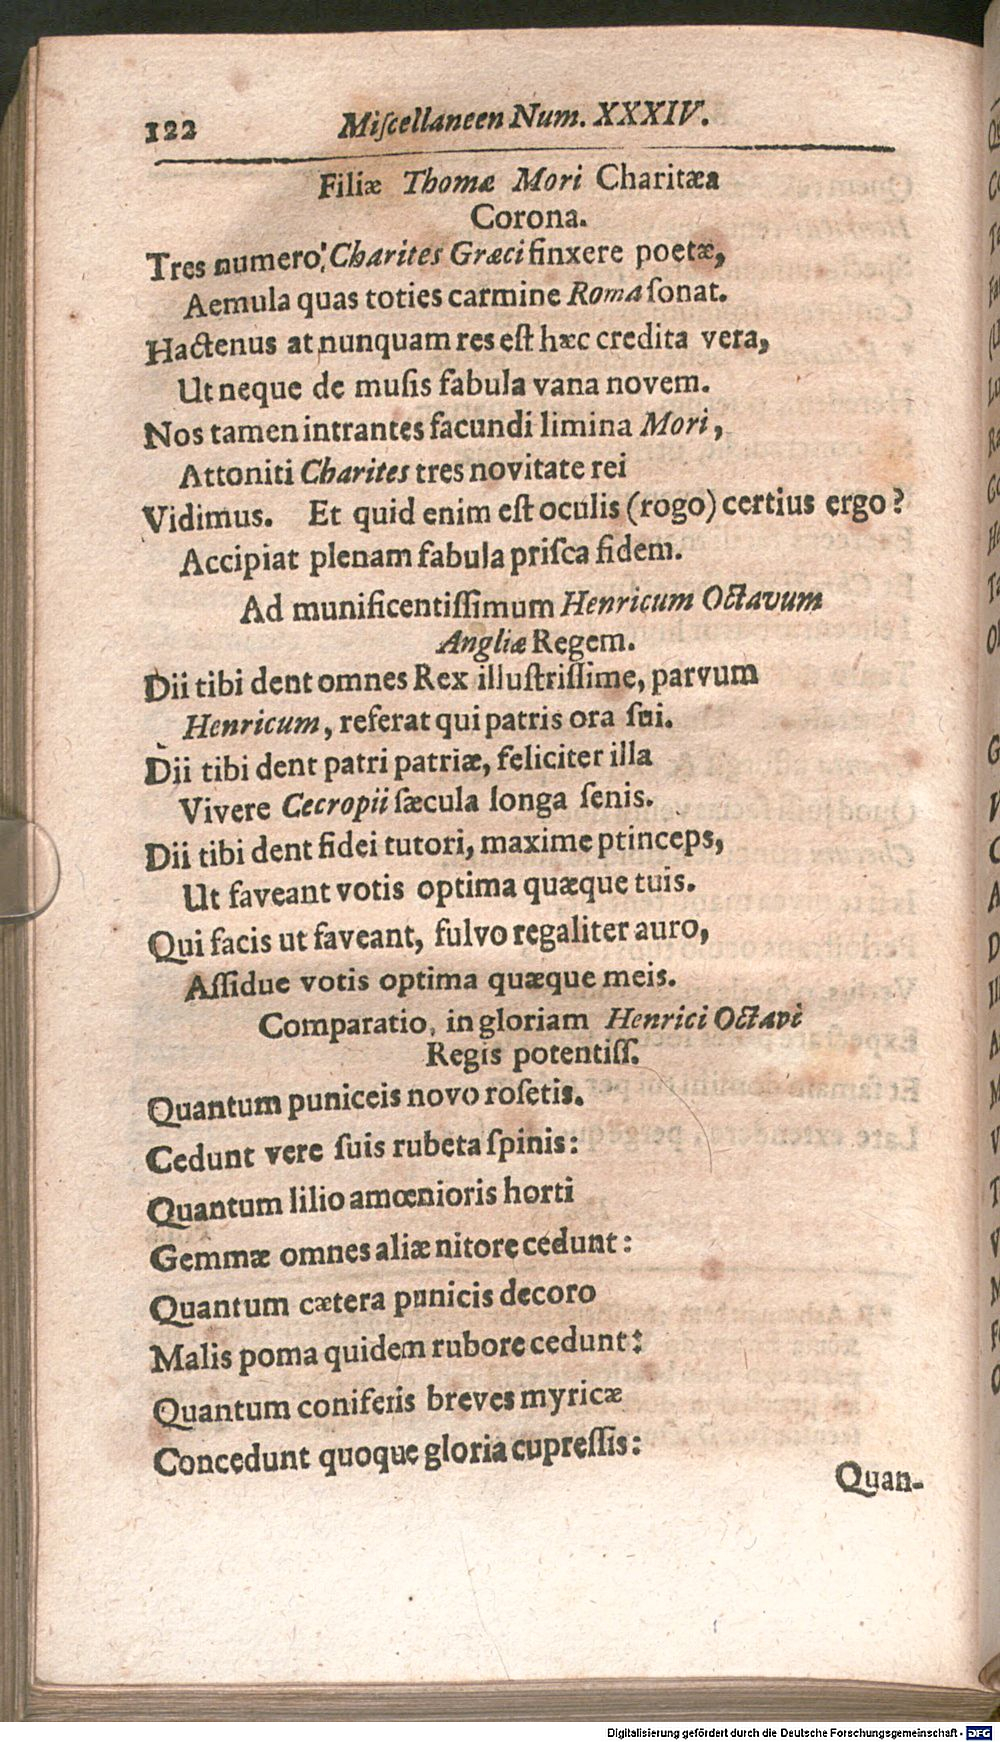 122 Miſcellaneen Num. XXXIV.
Filiæ Thomæ Mori Charitæa
Corona.
Tres numero! Charites Græci finxere poetæ,
Aemula quas toties carmine Roma ſonat.
Hactenus at nunquam res eſt hæc credita vera,
Ut neque de muſis fabula vana novem.
Nos tamen intrantes facundi limina Mori,
Attoniti Charites tres novitate rei
Vidimus. Et quid enim eſt oculis (rogo) certius ergo?
Accipiat plenam fabula priſca fidem.
Ad munificentiſſimum Henricum Octavum
Angliæ Regem.
Dii tibi dent omnes Rex illuſtriſſime, parvum
Henricum, referat qui patris ora ſui.
Dii tibi dent patri patriæ, feliciter illa
Vivere Cecropii ſæcula longa ſenis.
Dii tibi dent fidei tutori, maxime ptinceps,
Ut faveant votis optima quæque tuis.
Qui facis ut faveant, fulvo regaliter auro,
Aſſidue votis optima quæque meis.
Comparatio, in gloriam Henrici Octavi
Regis potentiſſ.
Quantum puniceis novo roſetis.
Cedunt vere ſuis rubeta ſpinis:
Quantum lilio amœnioris horti
Gemmæ omnes aliæ nitore cedunt:
Quantum cætera punicis decoro
Malis poma quidem rubore cedunt:
Quantum coniferis breves myricæ
Concedunt quoque gloria cupreſſis:
Quan-
Digitalisierung gefördert durch die Deutsche Forschungsgemeinschaft - DFG